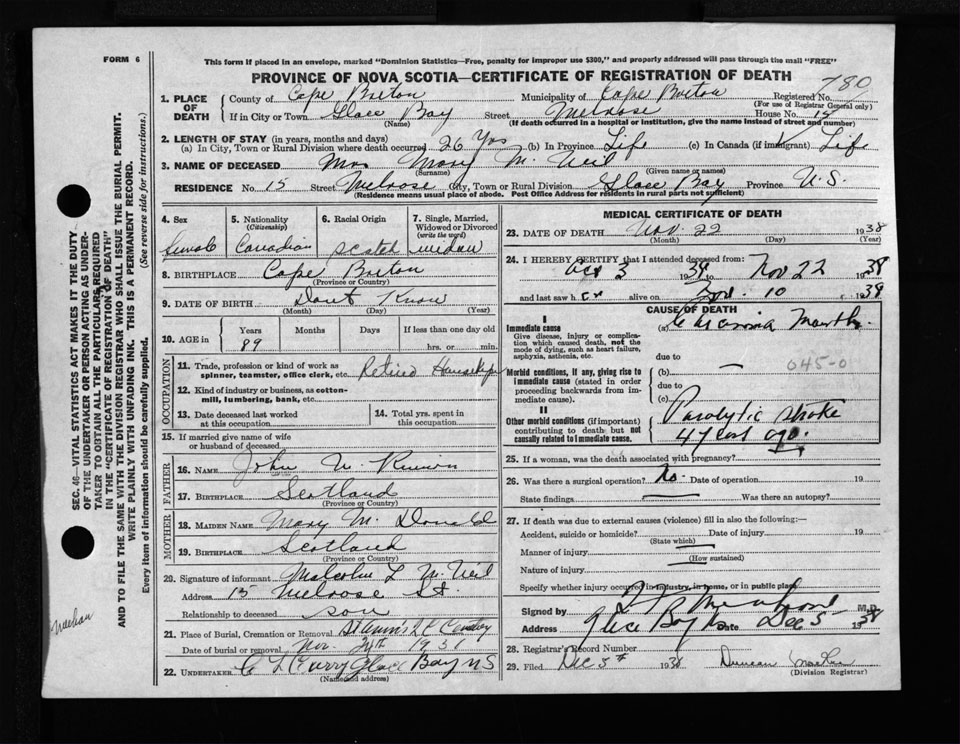 FORM 6
This form if placed in an envelope, marked "Dominion Statistics—Free, penalty for improper use $300," and properly addressed will pass through the mail "FREE"
PROVINCE OF NOVA SCOTIA—CERTIFICATE OF REGISTRATION OF DEATH
780
1. PLACE OF DEATH County of Cape Breton Municipality of Cape Breton Registered No.
(For use of Registrar General only)
If in City or Town Glace Bay Street Melrose House No. 15
(Name) (If death occurred in a hospital or institution, give the name instead of street and number)
2. LENGTH OF STAY (in years, months and days)
(a) In City, Town or Rural Division where death occurred 26 Yrs (b) In Province Life (c) In Canada (if immigrant) Life
3. NAME OF DECEASED Mrs Mary M. Neil
(Surname) (Given name or names)
RESIDENCE No. 15 Street Melrose City, Town or Rural Division Glace Bay Province N.S.
(Residence means usual place of abode. Post Office Address for residents in rural parts not sufficient)
4. Sex 5. Nationality (Citizenship) 6. Racial Origin 7. Single, Married, Widowed or Divorced (write the word)
Female Canadian Scotch widow
8. BIRTHPLACE Cape Breton
(Province or Country)
9. DATE OF BIRTH Dont Know
(Month) (Day) (Year)
10. AGE in Years Months Days If less than one day
89 hrs. or min.
OCCUPATION
11. Trade, profession or kind of work as spinner, teamster, office clerk, etc. Retired
12. Kind of industry or business, as cotton-mill, lumbering, bank, etc.
13. Date deceased last worked at this occupation
14. Total yrs. spent in this occupation
15. If married give name of wife or husband of deceased
FATHER
16. NAME John
17. BIRTHPLACE Scotland
(Province or Country)
MOTHER
18. MAIDEN NAME Mary Mc Donald
19. BIRTHPLACE Scotland
(Province or Country)
20. Signature of informant Malcolm L Mc Neil
Address 15 Melrose St.
Relationship to deceased son
21. Place of Burial, Cremation or Removal St Anns
Date of burial or removal Nov. 24th 1938
22. UNDERTAKER C L Curry Glace Bay N S
(Name and address)
MEDICAL CERTIFICATE OF DEATH
23. DATE OF DEATH Nov. 22 1938
(Month) (Day) (Year)
24. I HEREBY CERTIFY that I attended deceased from:
Oct 3 1938 to Nov 22 1938
and last saw h er alive on Nov. 10 1938
CAUSE OF DEATH
I
Immediate cause
Give disease, injury or complication which caused death, not the mode of dying, such as heart failure, asphyxia, asthenia, etc.
(a) Carcinoma Mouth
due to
045-0
Morbid conditions, if any, giving rise to immediate cause (stated in order proceeding backwards from immediate cause).
(b) —
due to
(c)
II
Other morbid conditions (if important) contributing to death but not causally related to immediate cause.
Paralytic stroke
4 years ago.
25. If a woman, was the death associated with pregnancy?
26. Was there a surgical operation? No. Date of operation 19
State findings Was there an autopsy?
27. If death was due to external causes (violence) fill in also the following:—
Accident, suicide or homicide? Date of injury 19
(State which)
Manner of injury
(How sustained)
Nature of injury
Specify whether injury occurred in industry, in home, or in public place
Signed by M.D.
Address Glace Bay Date Dec 5 1938
28. Registrar's Record Number
29. Filed Dec 5th 1938 Duncan
(Division Registrar)
SEC. 46—VITAL STATISTICS ACT MAKES IT THE DUTY
OF THE UNDERTAKER OR PERSON ACTING AS UNDER-
TAKER TO OBTAIN ALL THE PARTICULARS REQUIRED
IN THE "CERTIFICATE OF REGISTRATION OF DEATH"
AND TO FILE THE SAME WITH THE DIVISION REGISTRAR WHO SHALL ISSUE THE BURIAL PERMIT.
WRITE PLAINLY WITH UNFADING INK. THIS IS A PERMANENT RECORD.
Every item of information should be carefully supplied. (See reverse side for instructions.)